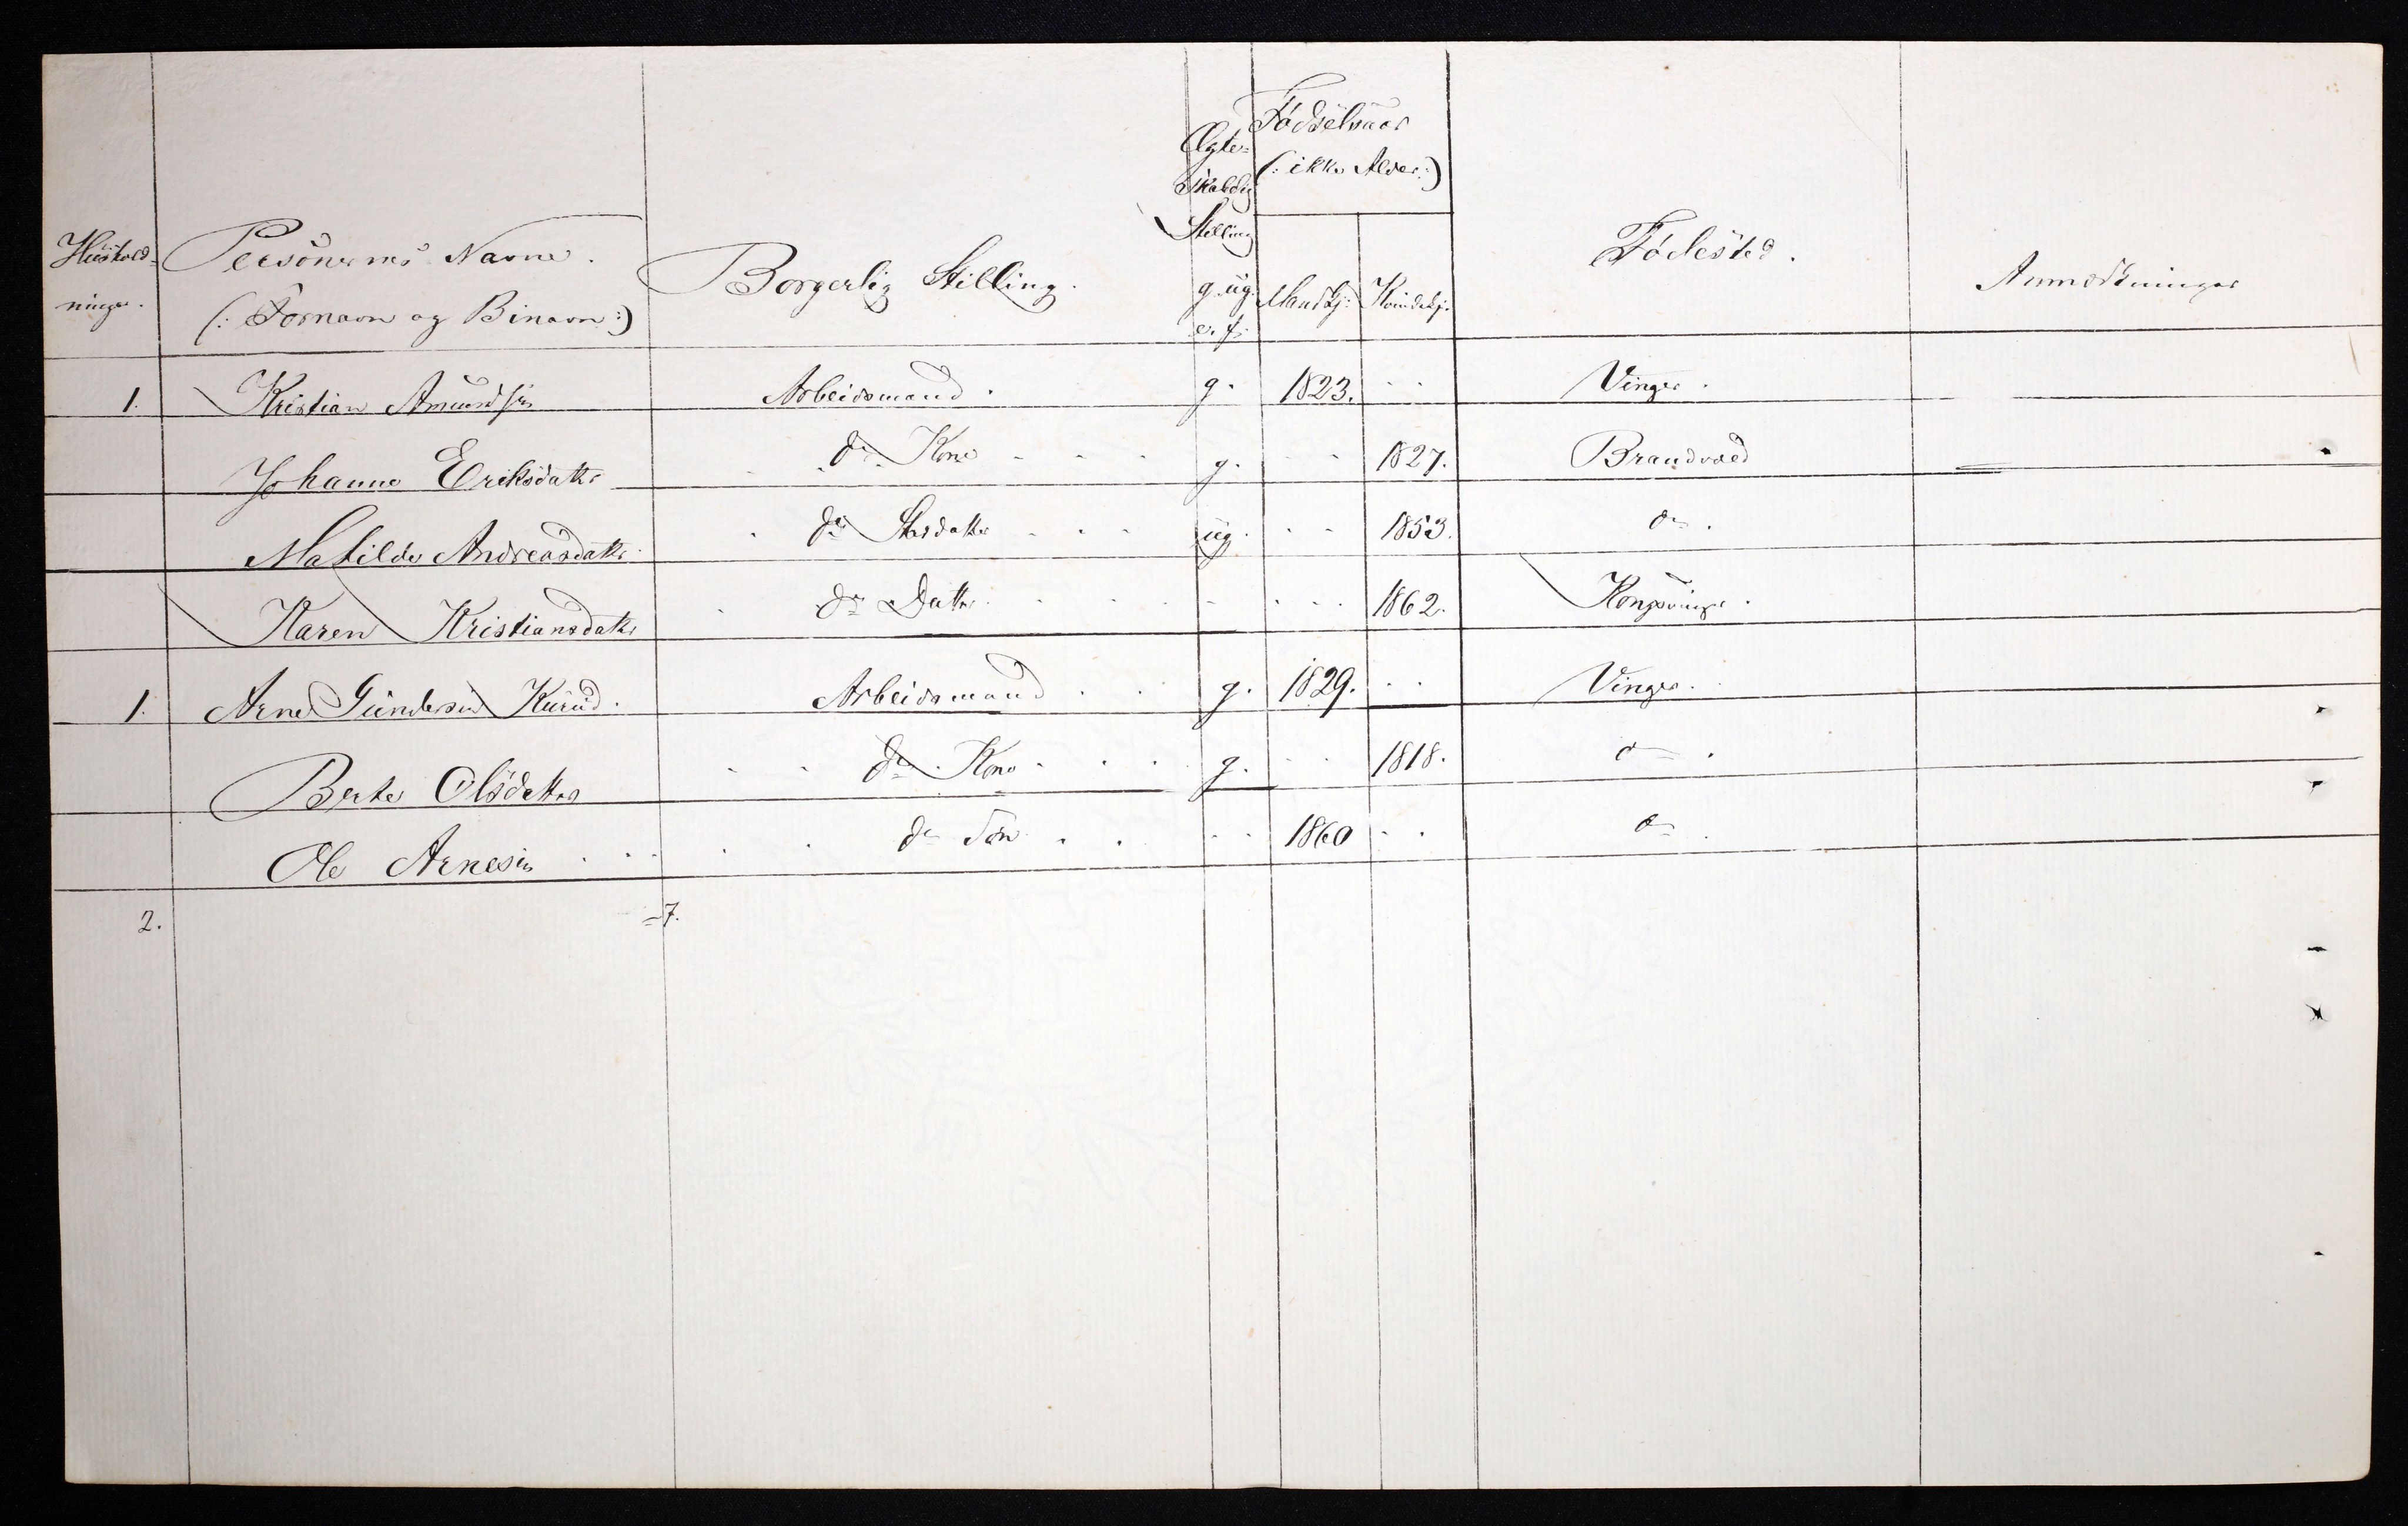 Hushold-
ninger.
Personernes Navne.
(: Fornavn og Binavn :)
Borgerlig Stilling.
Ægte-
skabelig
Stilling
g. ug.
e. f.
Fødselsaar
(: ikke Alder :)
Mandkj. Kvindekj.
Fødested.
Anmærkninger
1. Kristian Amundsen Arbeidsmand. g. 1823. Vinger.
Johanne Eriksdatter do Kone g. 1827. Brandvold
Matilde Andreasdatter do Stedatter ug. 1853. do.
Karen Kristiansdatter do Datter 1862. Kongsvinger.
1. Arne Gundersen Kurud. Arbeidsmand g. 1829. Vinger.
Berte Olsdatter do Kone g. 1818. do.
Ole Arnesen do Søn 1860 do.
2. = 7.